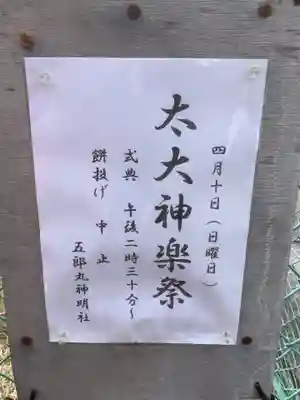 四月十日（日曜日）
太大神楽祭
式典 午後二時三十分～
餅投げ 中止
五郎丸神明社